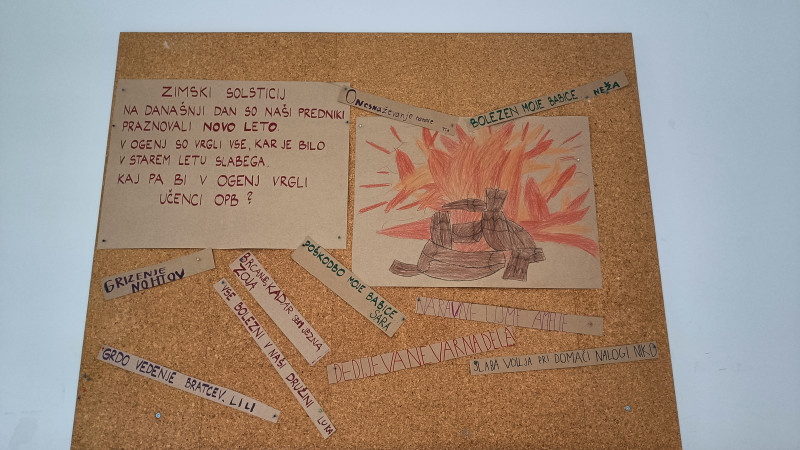 ZIMSKI SOLSTICIJ
NA DANAŠNJI DAN SO NAŠI PREDNIKI
PRAZNOVALI NOVO LETO.
V OGENJ SO VRGLI VSE, KAR JE BILO
V STAREM LETU SLABEGA.
KAJ PA BI V OGENJ VRGLI
UČENCI OPB?
Onesnaževanje
BOLEZEN MOJE BABICE NEŽA
GRIZENJE
NOHTOV
BRCANJE, KADAR SEM JEZNA
ZOJA
POŠKODBO MOJE BABICE
SARA
VSE BOLEZNI V NAŠI DRUŽINI LUKA
NARAVNE
DEDIJEVA NEVARNA DELA
SLABA VOLJA PRI DOMAČI NALOGI NIKO
GRDO VEDENJE BRATCEV. LILI